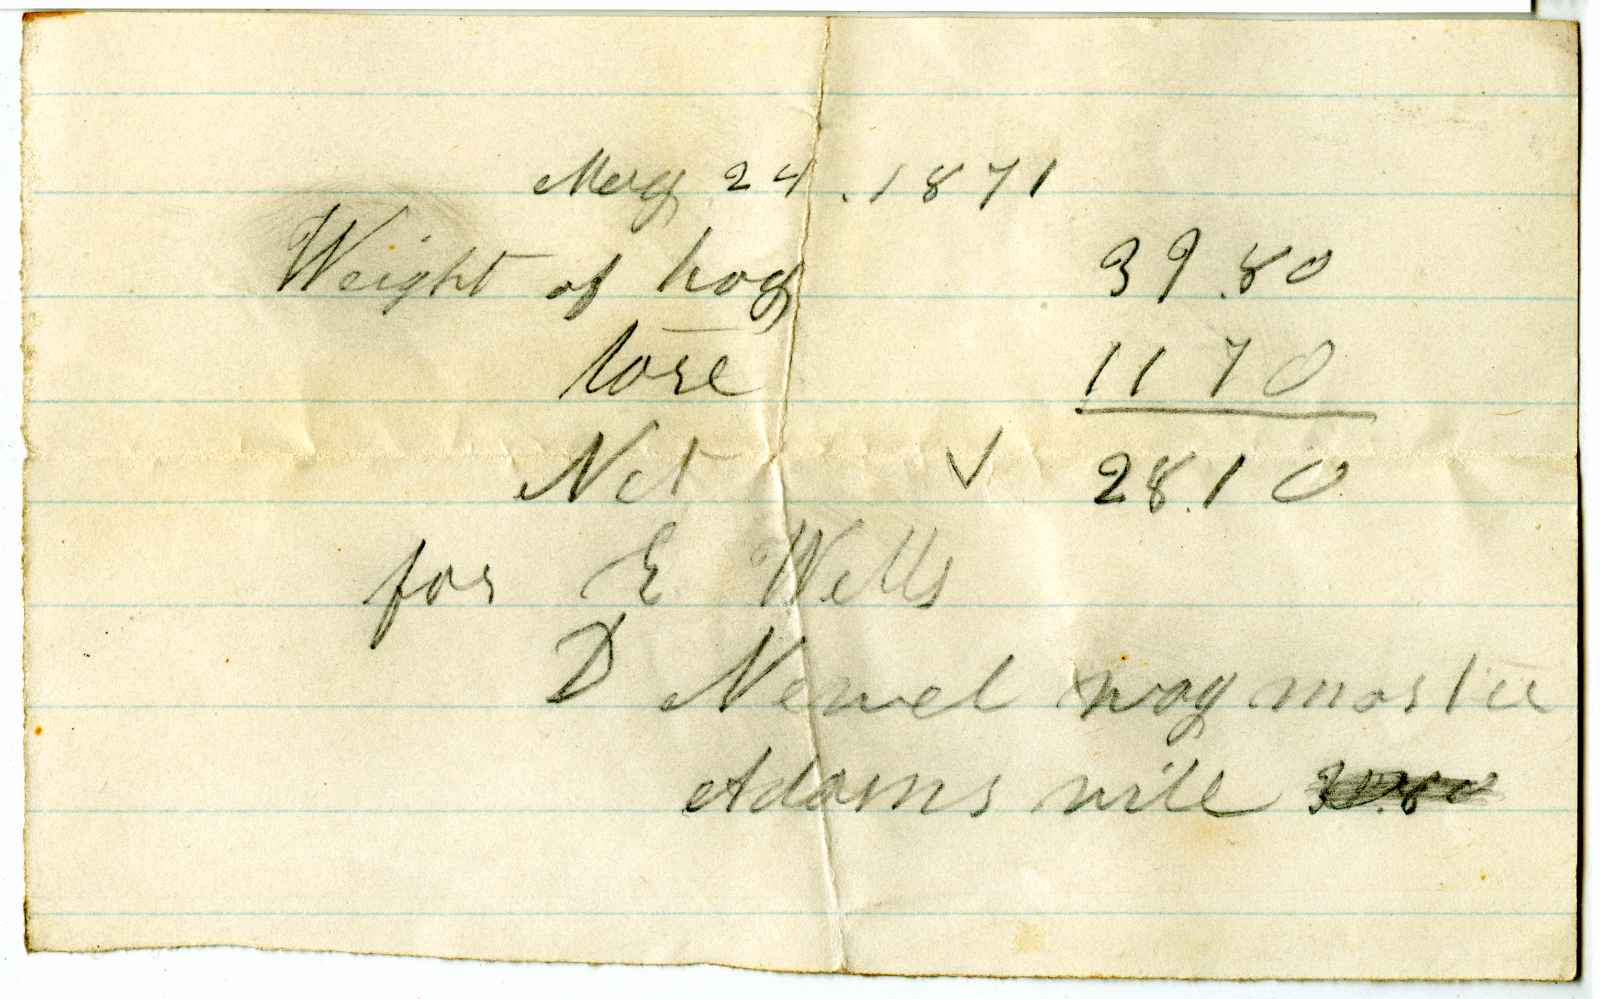 May 24. 1871
Weight of hog 39.80
tare 1170
Net ✓ 28.10
for E Wells
D Newel wagmaster
Adams ville